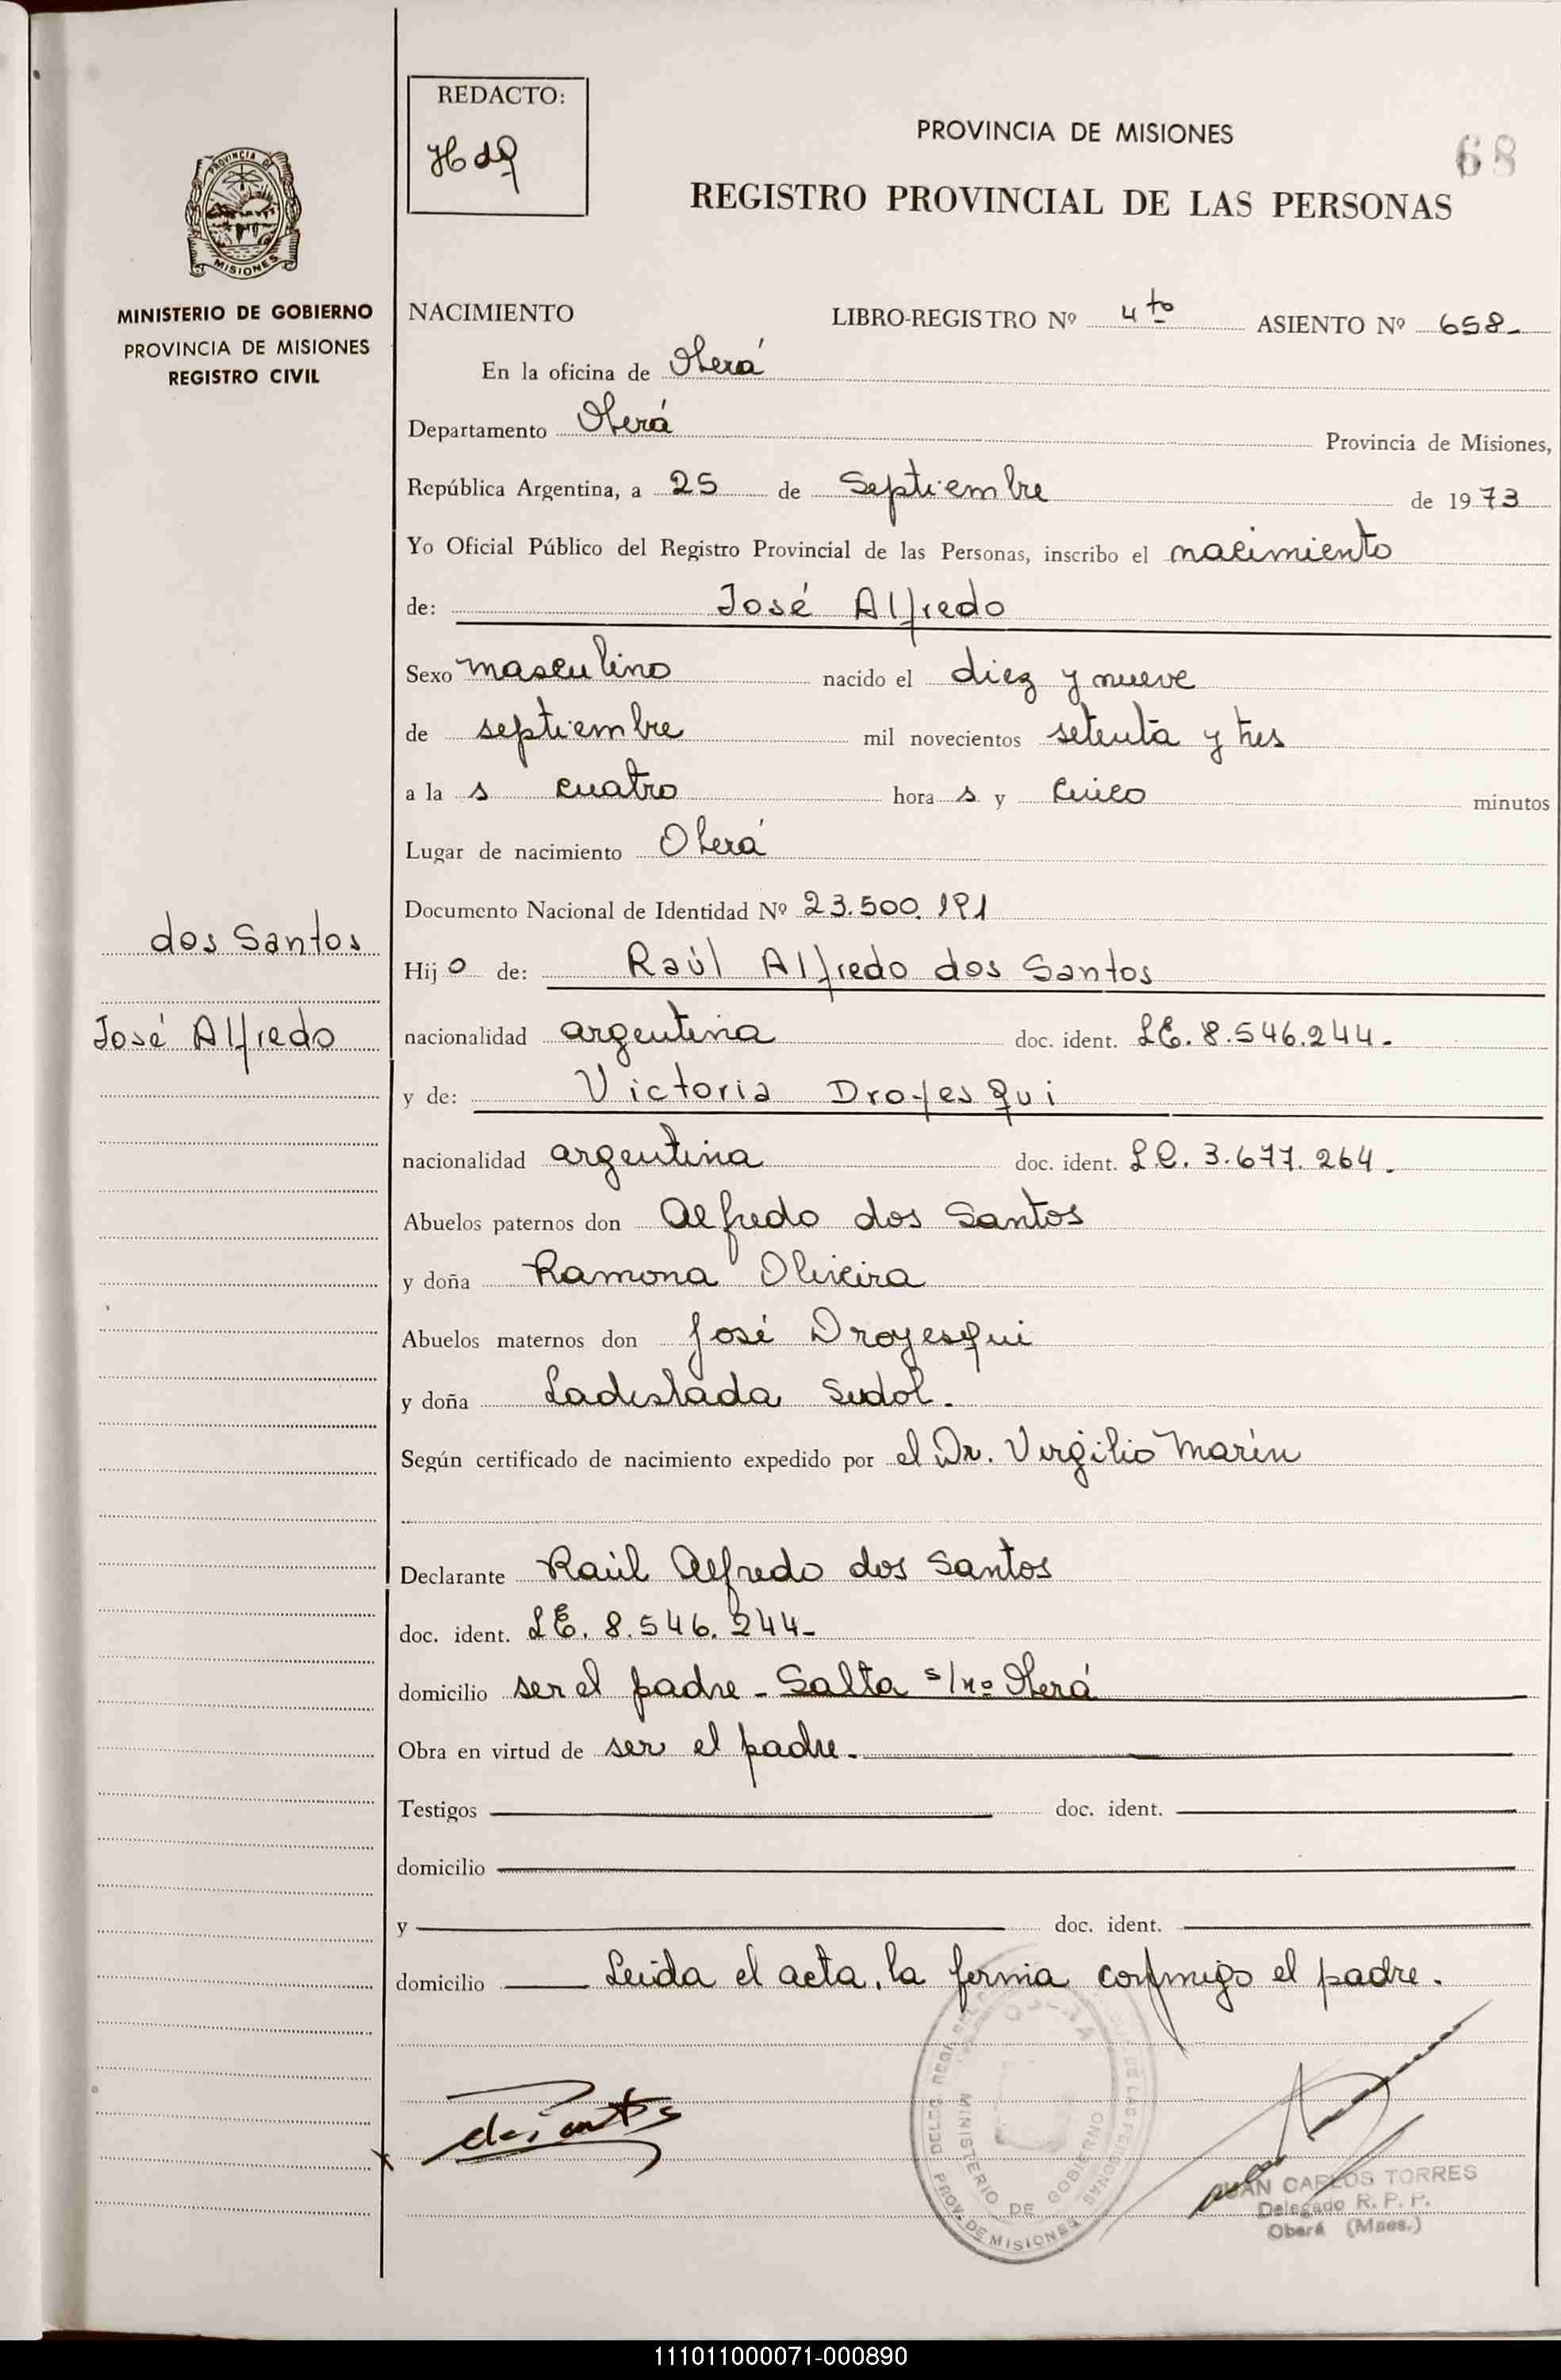 REDACTO:
HdQ
PROVINCIA DE MISIONES
68
REGISTRO PROVINCIAL DE LAS PERSONAS
PROVINCIA DE
MISIONES
MINISTERIO DE GOBIERNO
PROVINCIA DE MISIONES
REGISTRO CIVIL
NACIMIENTO LIBRO-REGISTRO Nº 4to ASIENTO Nº 658-
En la oficina de Oberá
Departamento Oberá Provincia de Misiones,
República Argentina, a 25 de Septiembre de 1973
Yo Oficial Público del Registro Provincial de las Personas, inscribo el nacimiento
de: José Alfredo
Sexo masculino nacido el diez y nueve
de septiembre mil novecientos setenta y tres
a la s cuatro hora s y cinco minutos
Lugar de nacimiento Oberá
Documento Nacional de Identidad Nº 23.500.191
dos Santos
Hij o de: Raúl Alfredo dos Santos
José Alfredo
nacionalidad argentina doc. ident. LE. 8.546.244.
y de: Victoria Droyesqui
nacionalidad argentina doc. ident. LC. 3.677.264.
Abuelos paternos don Alfredo dos Santos
y doña Ramona Oliveira
Abuelos maternos don José Droyesqui
y doña Ladislada Sudol.
Según certificado de nacimiento expedido por el Dr. Virgilio Marín
Declarante Raúl Alfredo dos Santos
doc. ident. LE. 8.546.244-
domicilio ser el padre - Salta s/nº Oberá
Obra en virtud de ser el padre.
Testigos doc. ident.
domicilio
y doc. ident.
domicilio Leida el acta, la firma conmigo el padre.
dos Santos
MINISTERIO DE GOBIERNO
PROV. DE MISIONES
JUAN CARLOS TORRES
Delegado R. P. P.
Oberá (Mnes.)
111011000071-000890